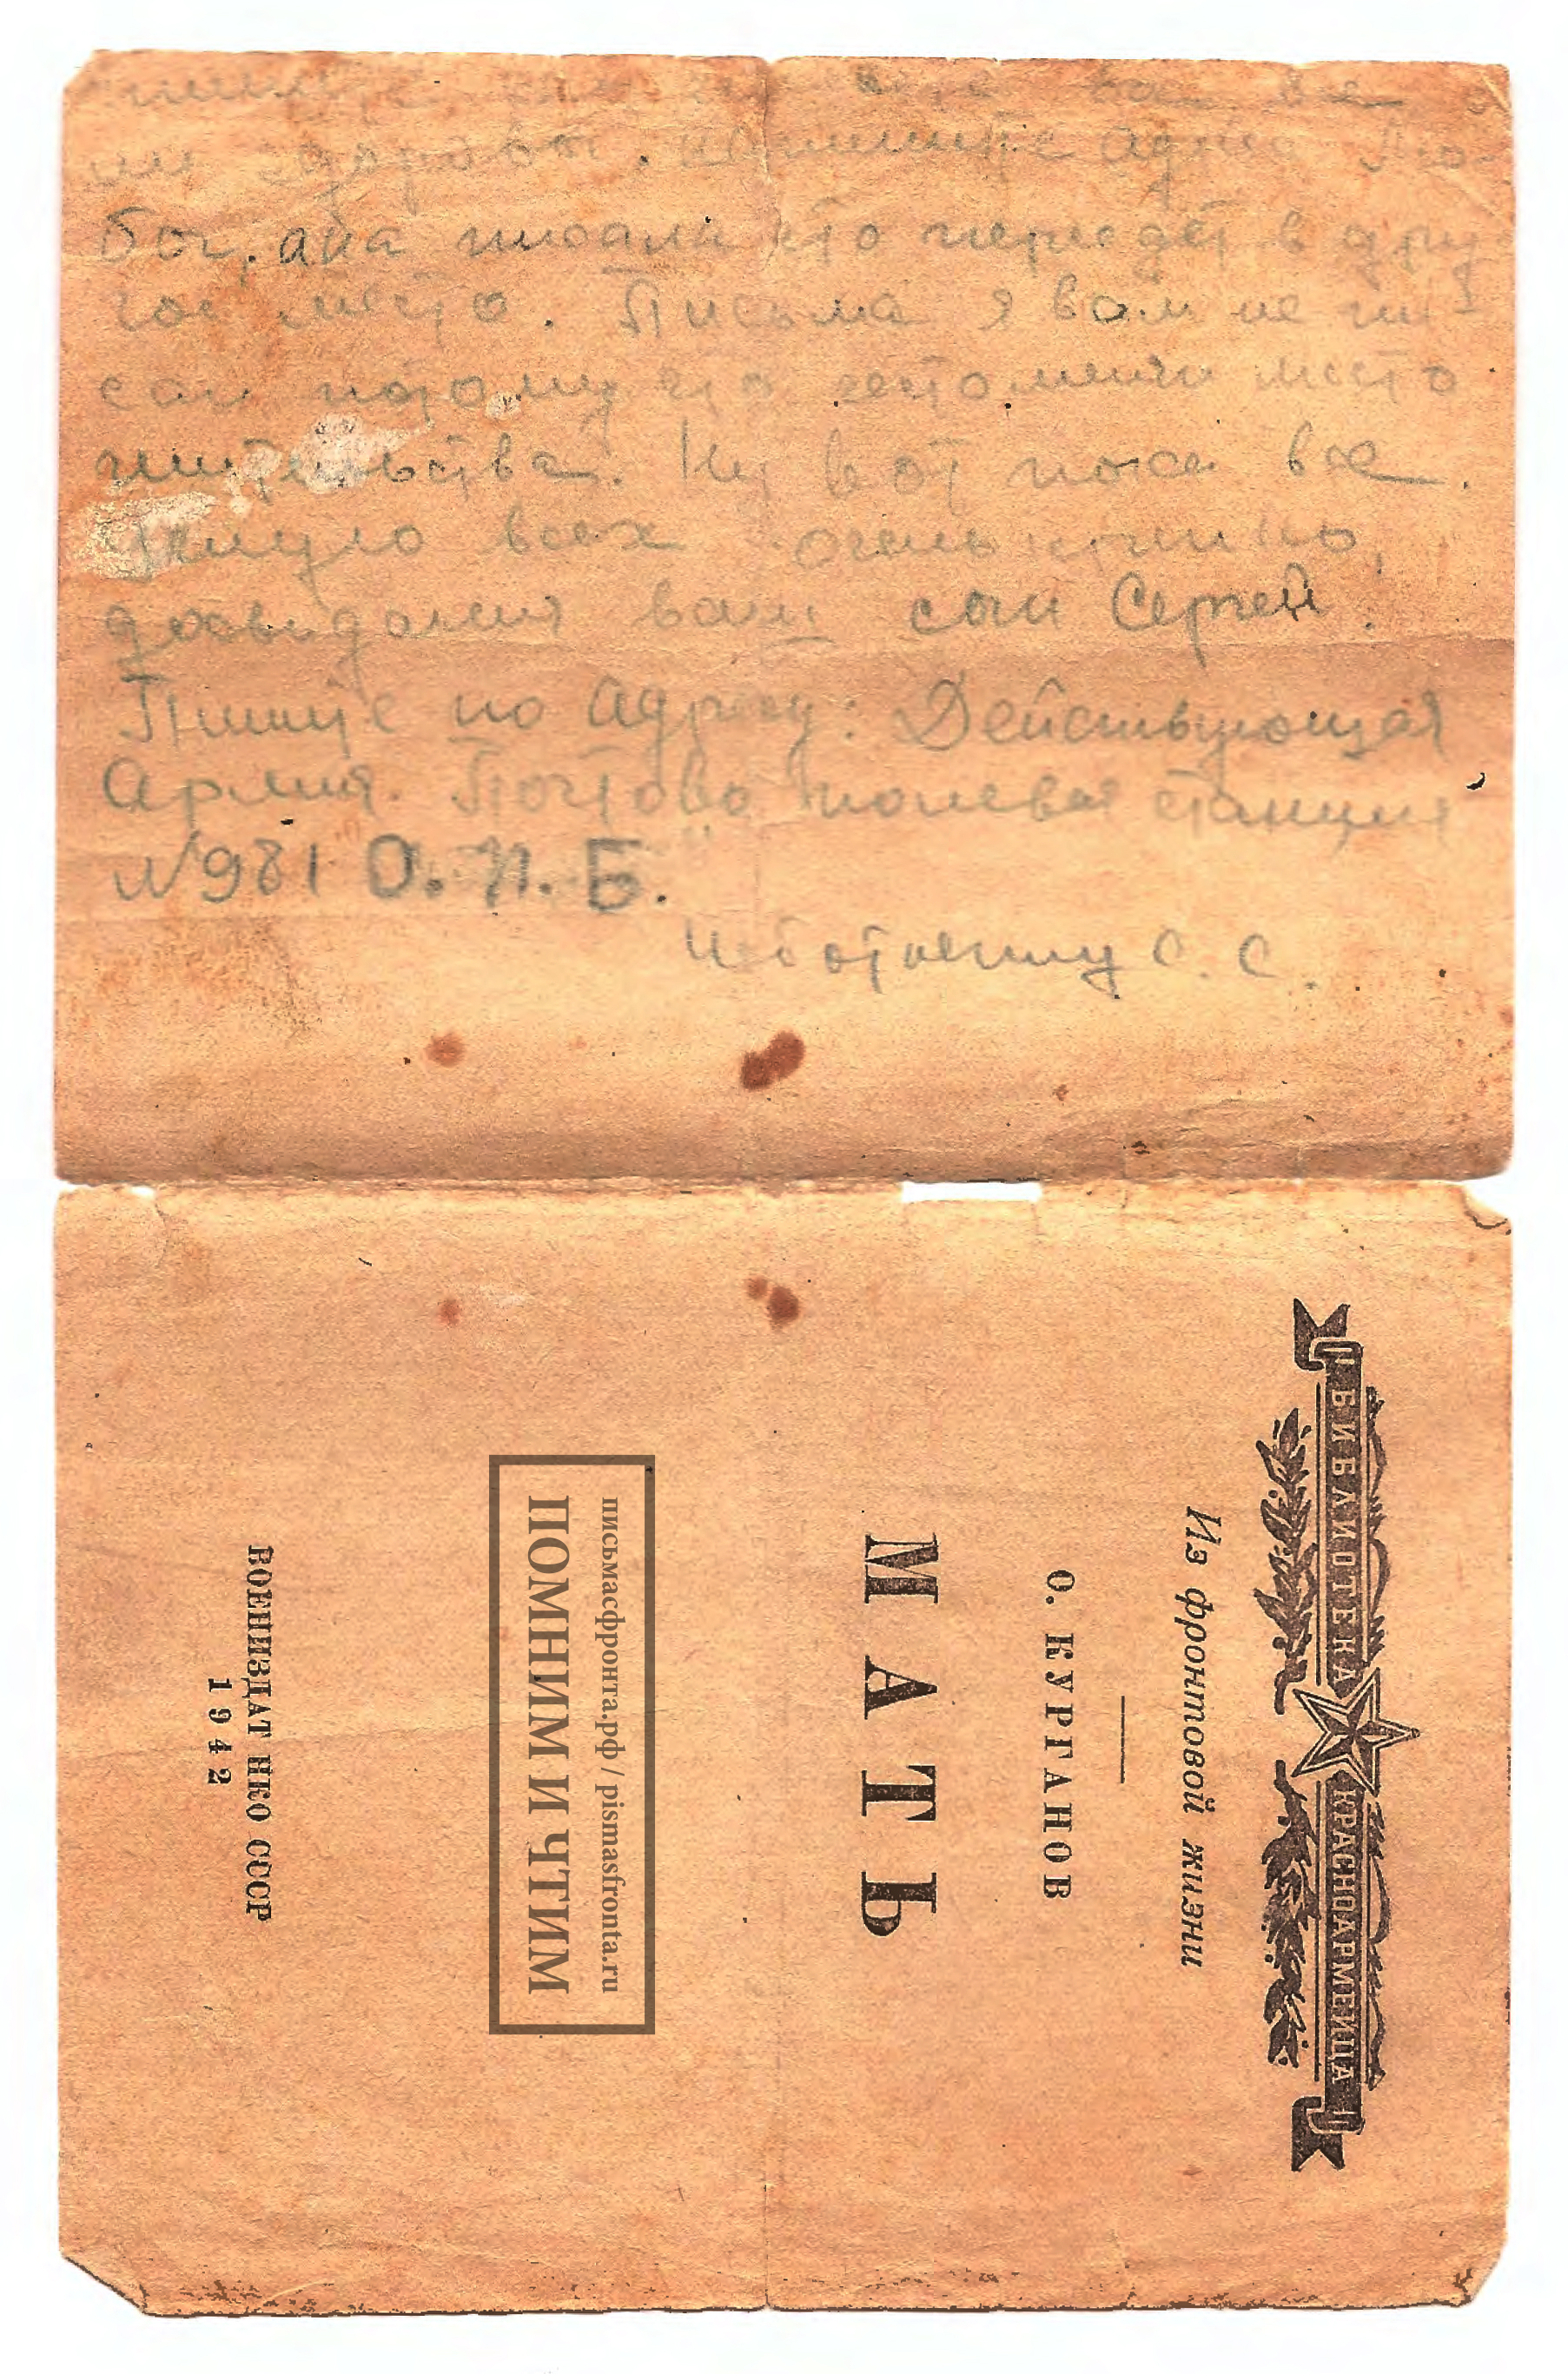 ли здоровы. напишите адрес Лю-
бы, ана писала что переедет в дру
гое место. Письма я вам не пи-
сал потому что место
жительства. Ну вот пока все.
Целую всех очень
досвидания ваш сын Сергей.
Пишите по адресу: Действующая
Армия. Почтово полевая станция
№981 О. П. Б.
С. С.
БИБЛИОТЕКА КРАСНОАРМЕЙЦА
Из фронтовой жизни
О. КУРГАНОВ
МАТЬ
письмасфронта.рф / pismasfronta.ru
ПОМНИМ И ЧТИМ
ВОЕНИЗДАТ НКО СССР
1942